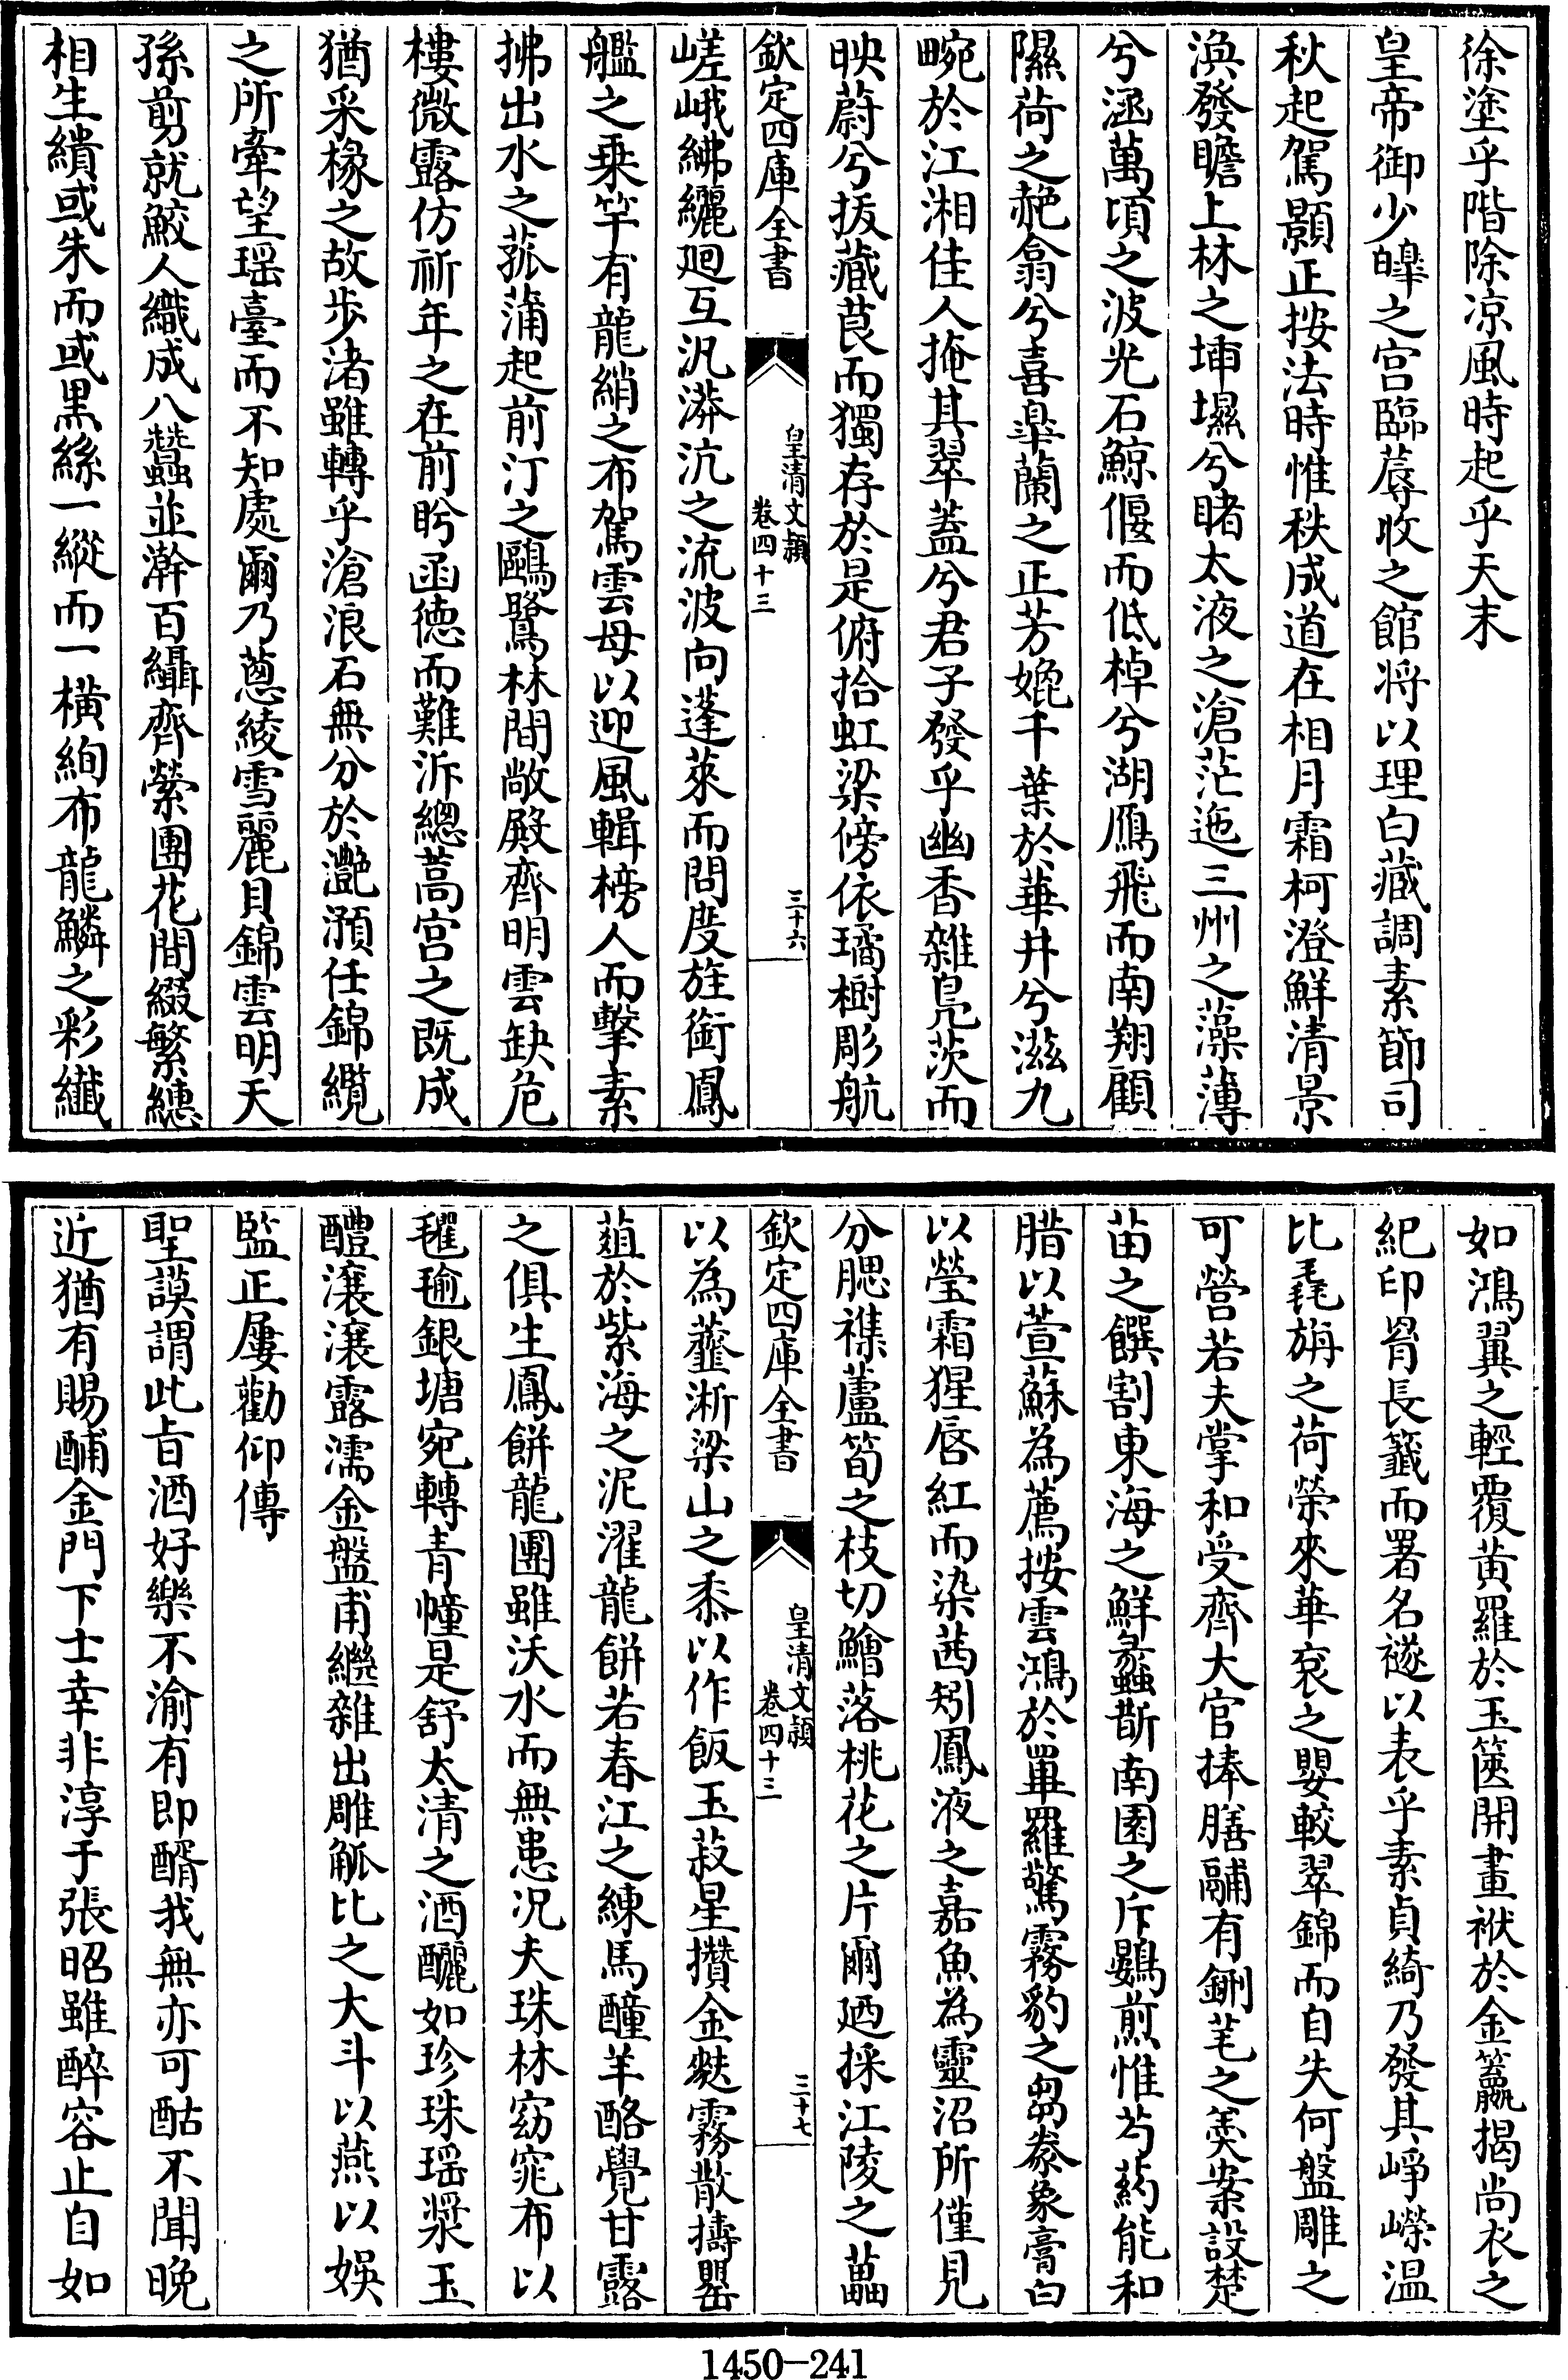 徐塗乎階除凉風時起乎天末
皇帝御少皥之宫臨蓐收之館将以理白藏調素節司
秋起駕顥正按法時惟秩成道在相月霜柯澄鮮清景
渙發瞻上林之堧壖兮睹太液之滄茫迤三州之藻薄
兮涵萬頃之波光石鯨偃而低棹兮湖鴈飛而南翔顧
隰荷之赩翕兮喜臯蘭之正芳娩千葉於華井兮滋九
畹於江湘佳人掩其翠蓋兮君子發乎幽香雜鳧茨而
映蔚兮拔藏莨而獨存於是俯拾虹梁傍依璚樹彫航
欽定四庫全書
皇清文穎
卷四十三
三十六
嵯峨紼纚廻互汎漭沆之流波向蓬萊而問度旌銜鳳
艦之乗竿有龍綃之布駕雲母以迎風輯榜人而擊素
拂出水之菰蒲起前汀之鷗鷺林間敞殿齊明雲缺危
樓微露仿祈年之在前盻函德而難泝總蒿宫之既成
猶采椽之故步渚雖轉乎滄浪石無分於灔澦任錦纜
之所牽望瑶臺而不知處爾乃蔥綾雪麗貝錦雲明天
孫剪就鮫人織成八蠶並澣百纈齊縈團花間綴繁繐
相生繢或朱而或黒絲一縱而一横絢布龍鱗之彩纎
如鴻翼之輕覆黄羅於玉篋開畫袱於金籯揭尚衣之
紀印胥長籤而署名襚以表乎素貞綺乃發其崢嶸温
比毳旃之荷榮來華衮之嬰較翠錦而自失何盤雕之
可營若夫掌和受齊大官捧膳鬴有鉶芼之羮案設楚
苗之饌割東海之鮮蠡斮南園之斥鷃煎惟芍葯能和
腊以萱蘇為薦按雲鴻於罼羅驚霧豹之芻豢象膏白
以瑩霜猩唇紅而染茜矧鳳液之嘉魚為靈沼所僅見
分腮襍蘆筍之枝切鱠落桃花之片爾廼採江陵之藟
欽定四庫全書
皇清文穎
卷四十三
三十七
以為虀淅梁山之黍以作飯玉菽星攢金麩霧散擣罌
葅於紫海之泥濯龍餅若春江之練馬醇羊酪覺甘露
之俱生鳳餅龍團雖沃水而無患況夫珠林窈窕布以
氍毹銀塘宛轉青幢是舒太清之酒釃如珍珠瑶漿玉
醴瀼瀼露濡金盤甫繼雜出雕觚比之大斗以燕以娱
監正屢勸仰傳
聖謨謂此㫖酒好樂不渝有即醑我無亦可酤不聞晚
近猶有賜酺金門下士幸非淳于張昭雖醉容止自如
1450-241